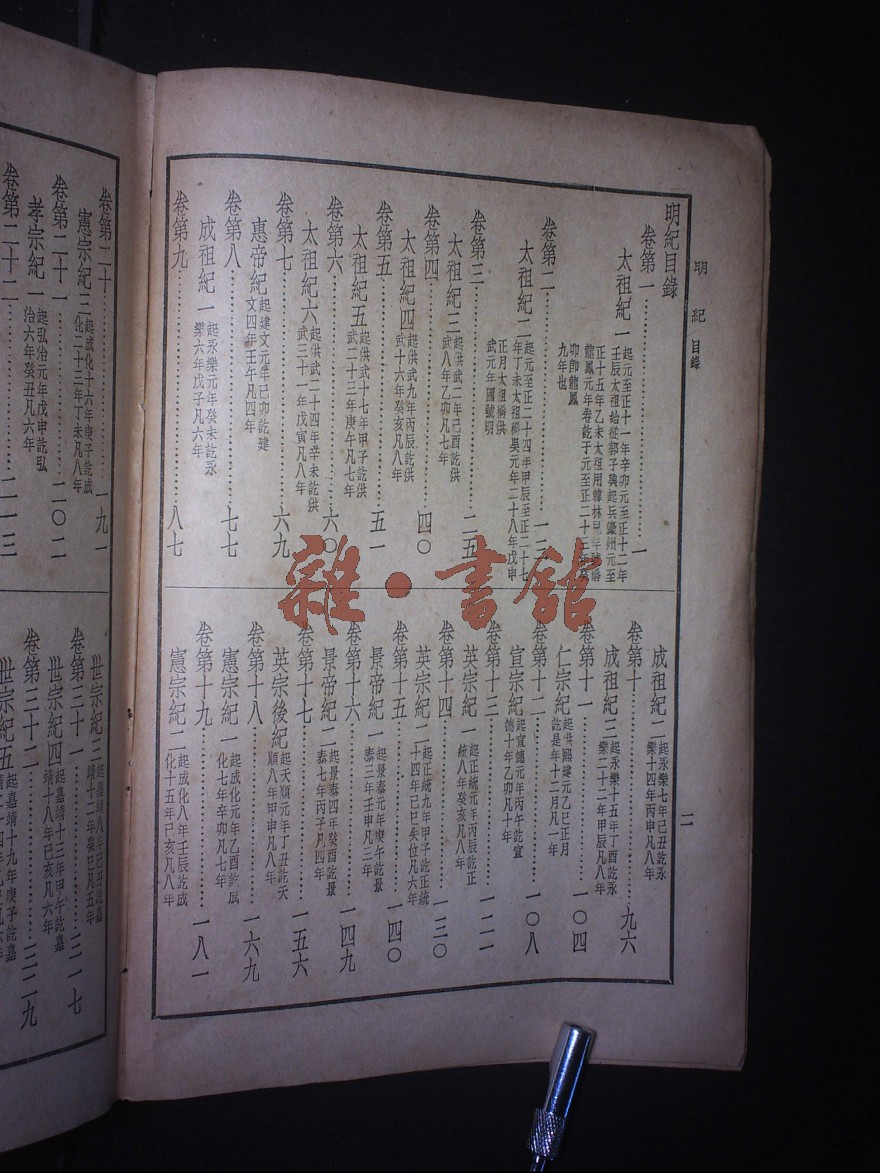 明紀 目錄
二
明紀目錄
卷第一……一
太祖紀一
起元至正十一年辛卯元至正十二年
壬辰太祖始從郭子興起兵濠州元至
正十五年乙未太祖用韓林兒年號稱
龍鳳元年卷訖于元至正二十三年癸
卯即龍鳳
九年也
卷第二……一三
太祖紀二
起元至正二十四年甲辰至正二十七
年丁未太祖稱吳元年二十八年戊申
正月太祖稱洪
武元年國號明
卷第三……二五
太祖紀三
起洪武二年己酉訖洪
武八年乙卯凡七年
卷第四……四〇
太祖紀四
起洪武九年丙辰訖洪
武十六年癸亥凡八年
卷第五……五一
太祖紀五
起洪武十七年甲子訖洪
武二十三年庚午凡七年
卷第六……六〇
太祖紀六
起洪武二十四年辛未訖洪
武三十一年戊寅凡八年
卷第七……六九
惠帝紀
起建文元年己卯訖建
文四年壬午凡四年
卷第八……七七
成祖紀一
起永樂元年癸未訖永
樂六年戊子凡六年
卷第九……八七
成祖紀二
起永樂七年己丑訖永
樂十四年丙申凡八年
卷第十……九六
成祖紀三
起永樂十五年丁酉訖永
樂二十二年甲辰凡八年
卷第十一……一〇四
仁宗紀
起洪熙建元乙巳正月
訖是年十二月凡一年
卷第十二……一〇八
宣宗紀
起宣德元年丙午訖宣
德十年乙卯凡十年
卷第十三……一二一
英宗紀一
起正統元年丙辰訖正
統八年癸亥凡八年
卷第十四……一三〇
英宗紀二
起正統九年甲子訖正統
十四年己巳失位凡六年
卷第十五……一四〇
景帝紀一
起景泰元年庚午訖景
泰三年壬申凡三年
卷第十六……一四九
景帝紀二
起景泰四年癸酉訖景
泰七年丙子凡四年
卷第十七……一五六
英宗後紀
起天順元年丁丑訖天
順八年甲申凡八年
卷第十八……一六九
憲宗紀一
起成化元年乙酉訖成
化七年辛卯凡七年
卷第十九……一八一
憲宗紀二
起成化八年壬辰訖成
化十五年己亥凡八年
卷第二十……一九一
憲宗紀三
起成化十六年庚子訖成
化二十三年丁未凡八年
卷第二十一……二〇二
孝宗紀一
起弘治元年戊申訖弘
治六年癸丑凡六年
卷第二十二……二一三
世宗紀三
起嘉靖八年己丑訖嘉
靖十二年癸巳凡五年
卷第三十一……三一七
世宗紀四
起嘉靖十三年甲午訖嘉
靖十八年己亥凡六年
卷第三十二……三二九
世宗紀五
起嘉靖十九年庚子訖嘉
雜·書館